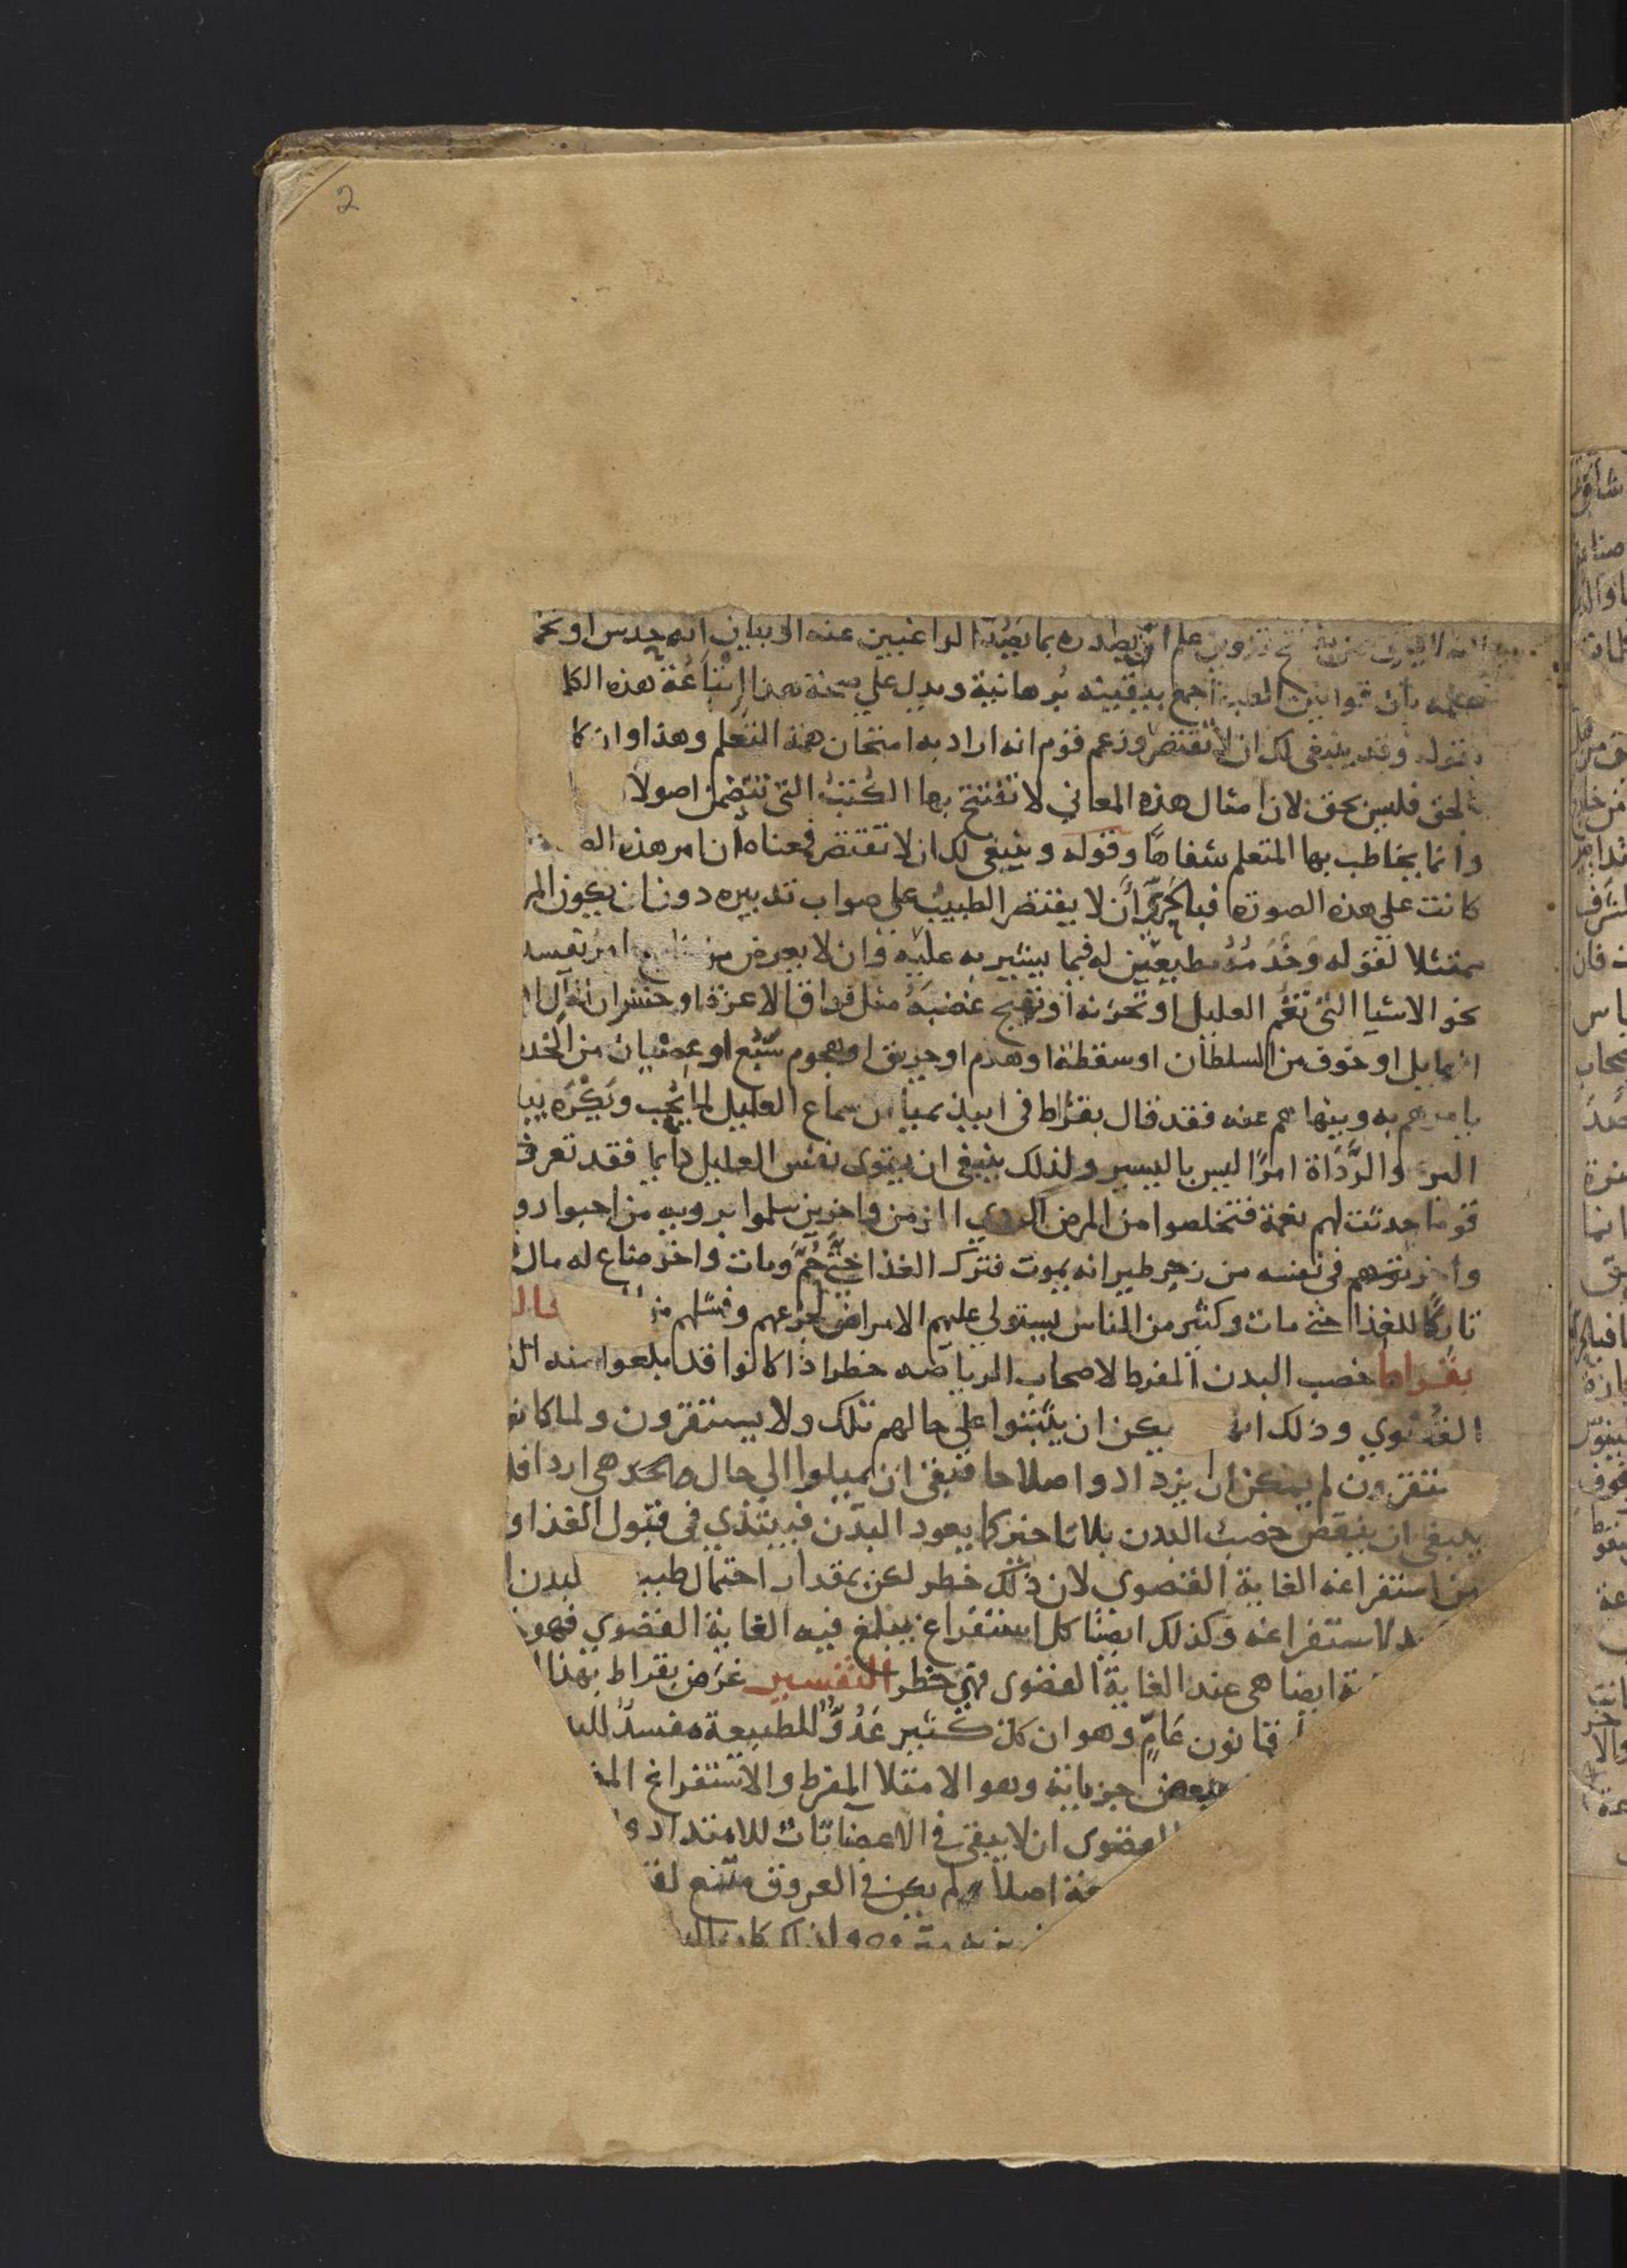 2
علم ان يصدره بما يصد الراغبين عنه او بيان انه حدس او تخ
تعلمه بان قوانين الطب اجمع يقينية برهانية ويدل على صحة هذا اتباعه هذه الكلا
بقوله وقد ينبغي لك ان لا تقتصر وزعم قوم انه اراد به امتحان همة المتعلم وهذا وان كا
الحق فليس بحق لان امثال هذه المعاني لا تفتتح بها الكتب التي تتضمن اصولا
وانما يخاطب بها المتعلم شفاها وقوله وينبغي لك ان لا تقتصر فمعناه ان امر هذه الص
كانت على هذه الصورة فبالحري ان لا يقتصر الطبيب على صواب تدبيره دون ان يكون المر
ممتثلا لقوله وخدمه مطيعين له فيما يشير به عليه وان لا يعرض من خارج امر يفسد
نحو الاشيا التي تغم العليل او تحزنه او تهيج غضبه مثل فراق الاعزة او خسران المال ا
او خوف من السلطان او سقطة او هدم او حريق او هجوم سبع او عصيان من الخد
يامرهم به وينهاهم عنه فقد قال بقراط في ابيذيميا ان سماع العليل لما يحب ويكره يبا
البر والرداة امرا ليس باليسير ولذلك ينبغي ان يقوى نفس العليل دايما فقد تعرف
قوما حدثت لهم نعمة فتخلصوا من المرض الردي المزمن واخرين سلموا بروية من احبوا ورو
واخر توهم في نفسه من زجر طير انه يموت فترك الغذا حتى حم ومات واخر ضاع له مال
تاركا للغذا حتى مات وكثير من الناس يستولي عليهم الامراض لجزعهم وفشلهم قال
بقراط خصب البدن المفرط لاصحاب الرياضه خطر اذا كانوا قد بلغوا منه الغ
القصوي وذلك انه يمكن ان يثبتوا على حالهم تلك ولا يستقرون ولما كانو
يستقرون لم يمكن ان يزدادوا اصلاحا فبقي ان يميلوا الى حال هي اردا فلذ
ينبغي ان ينقص خصب البدن بلا تاخير كيما يعود البدن فيبتدي في قبول الغذا و
من استفراغه الغاية القصوى لان ذلك خطر لكن بمقدار احتمال طبيـ لبدن ا
لاستفراغه وكذلك ايضا كل استفراغ يبلغ فيه الغاية القصوي فهو خ
ية ايضا هي عند الغاية القصوى فهي خطر التفسير غرض بقراط بهذا ا
قانون عام وهو ان كل كثير عدو للطبيعة مفسد للبد
ببعض جزياته وهو الامتلا المفرط والاستفراغ المف
القصوى ان لا يبقى في الاعضا تات للامتداد و
عة اصلا ولم يكن في العروق متسع لق